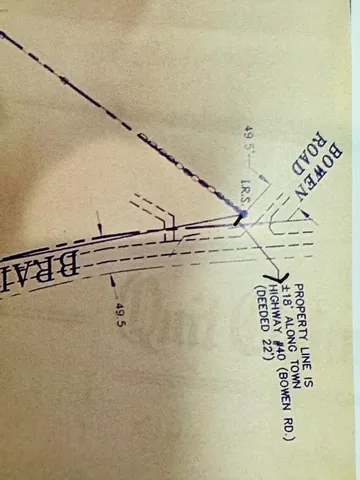 BOWEN
ROAD
49.5'
I.R.S.
PROPERTY LINE IS
±18' ALONG TOWN
HIGHWAY #40 (BOWEN RD.)
(DEEDED 22')
BRAI
49.5